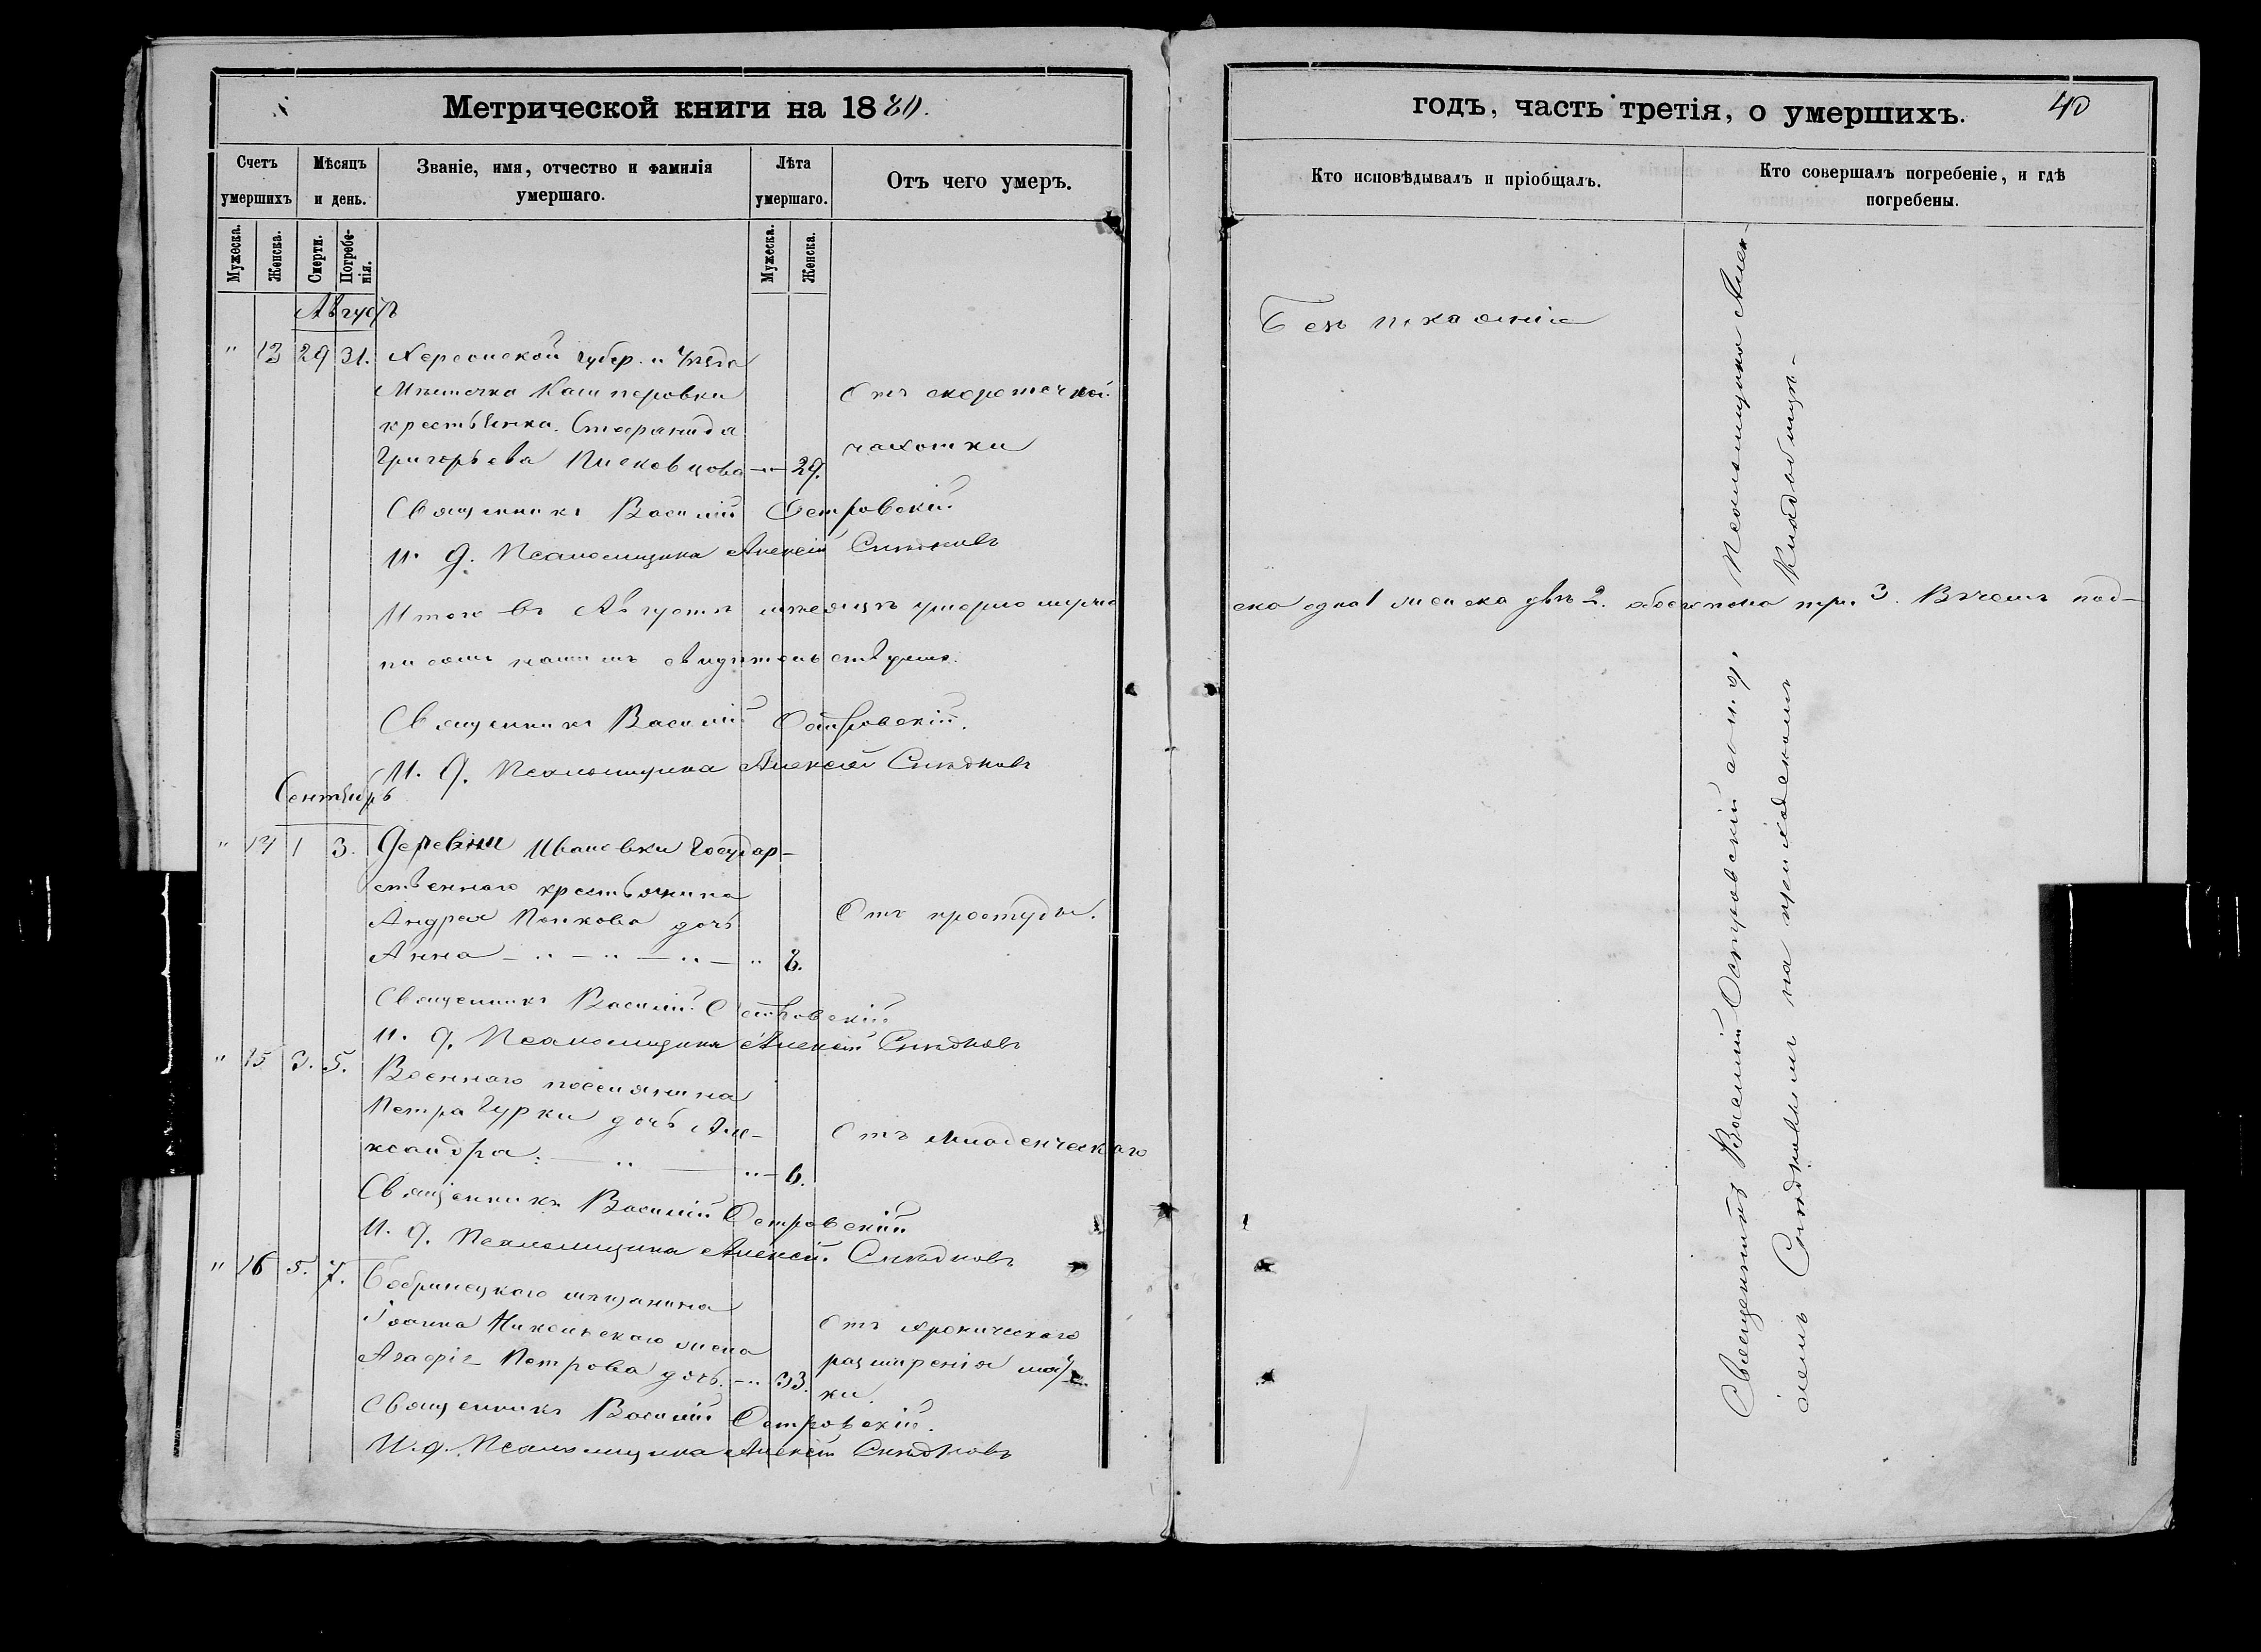 Метрической книги на 1880.
Счетъ умершихъ
Мѣсяцъ и день.
Званіе, имя, отчество и фамилія умершаго.
Лѣта умершаго.
Отъ чего умеръ.
Мужеска.
Женска.
Смерти.
Погребенія.
Мужеска.
Женска.
Августъ
" 13 29 31. Херсонской губер. и уѣзда
Мѣстечка Кашперовки Отъ скоротечной
крестьянка Стефанида
чахотки
Григорьева Писковцова —"— 29.
Священникъ Василій Островскій
И. д. Псаломщика Алексѣй Слюдковъ
Итого въ Августѣ мѣсяцѣ умерло муже
писомъ нашимъ свидѣтельствуемъ.
Священникъ Василій Островскій.
И. д. Псаломщика Алексѣй Слюдковъ
Сентябрь
" 14 1 3. Деревни Ивановки Государ-
ственнаго крестьянина
Андрея Попкова дочь Отъ простуды.
Анна — " — " — " — " 8.
Священникъ Василій Островскій
И. д. Псаломщика Алексѣй Слюдковъ
" 15 3. 5. Военнаго поселянина
Петра Гурки дочь Але- Отъ младенческаго
ксандра: — " — " — 6.
Священникъ Василій Островскій
И. д. Псаломщика Алексѣй Слюдковъ
" 16 5. 7. Бобринецкаго мѣщанина
Іоанна жена Отъ хроническаго
Агафія Петрова дочь. —" 33. разширенія мат-
ки.
Священникъ Василій Островскій.
И. д. Псаломщика Алексѣй Слюдковъ
годъ, часть третія, о умершихъ. 40
Кто исповѣдывалъ и пріобщалъ.
Кто совершалъ погребеніе, и гдѣ погребены.
Безъ покаянія
ска одна 1 женска двѣ 2. обоего пола три 3. В чемъ под-
Священникъ Василій Островскій съ и. д. Псаломщика Алек-
сѣемъ Слюдковымъ на приходскомъ Кладбищѣ.